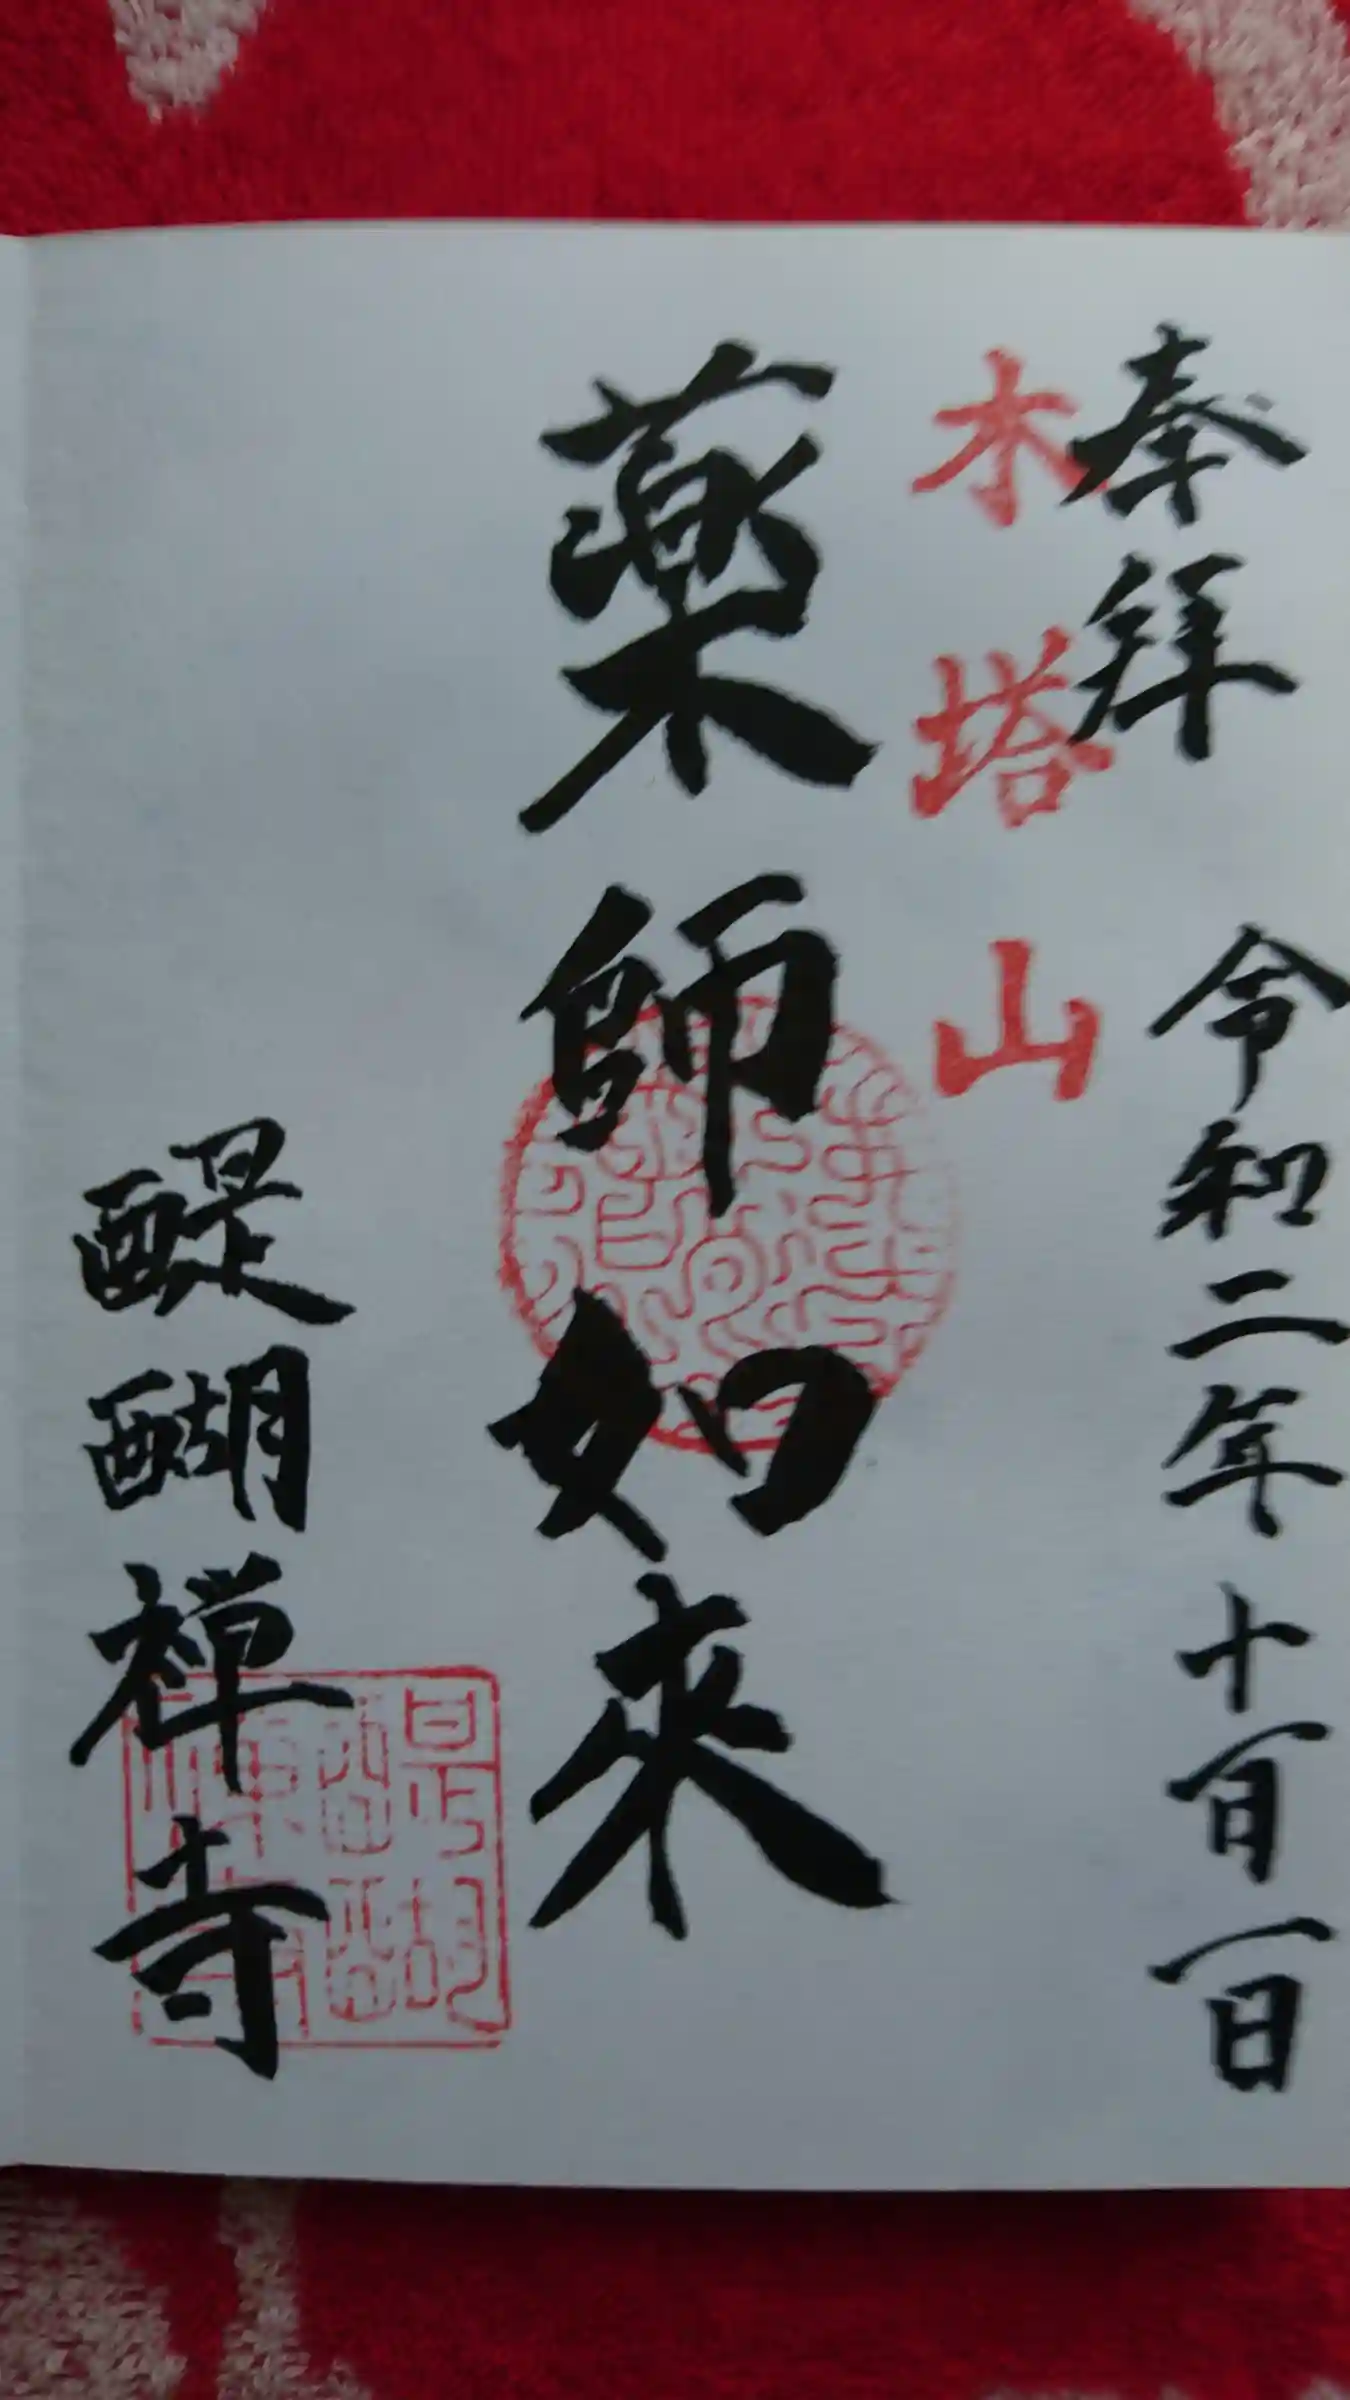 奉拝 令和二年十一月一日
木塔山
薬師如来
醍醐禅寺
醍醐
禪寺